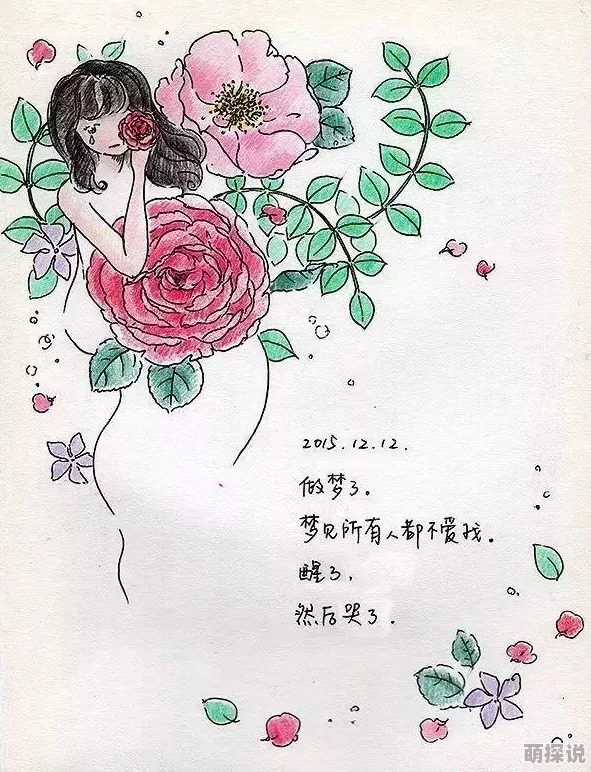 2015.12.12.
做梦了。
梦见所有人都不爱我。
醒了，
然后哭了．
萌探说